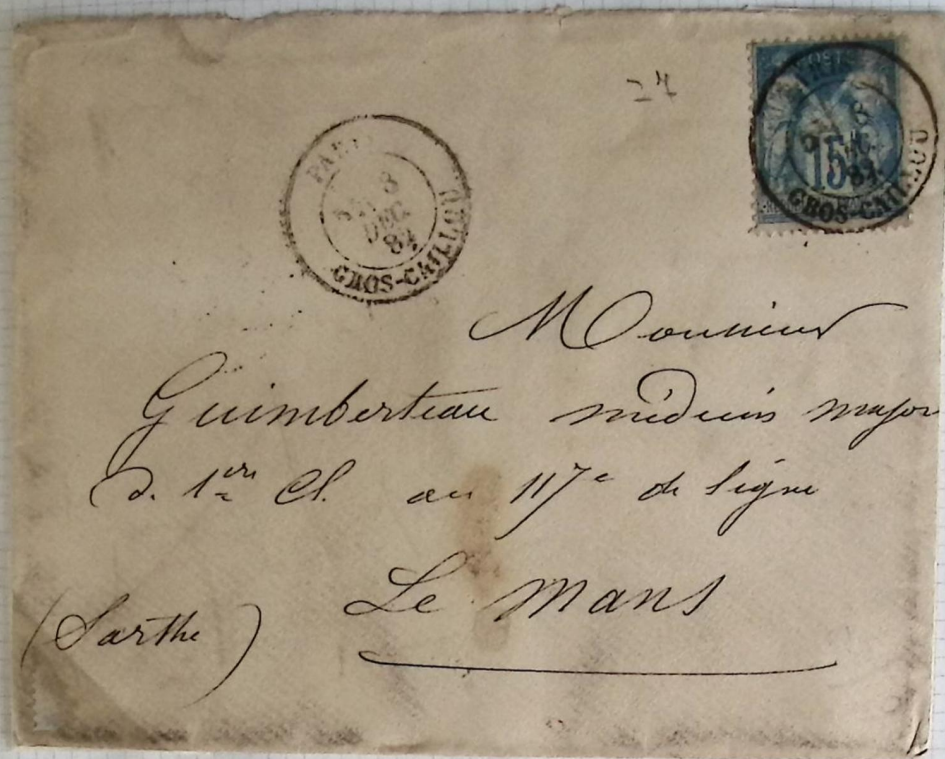 24
PARIS
8
DEC
84
GROS-CAILLOU
15
8
DEC
84
GROS-CAILLOU
Monsieur
Guimberteau médecin major
d. 1ère Cl. au 117e de ligne
Le Mans
(Sarthe)